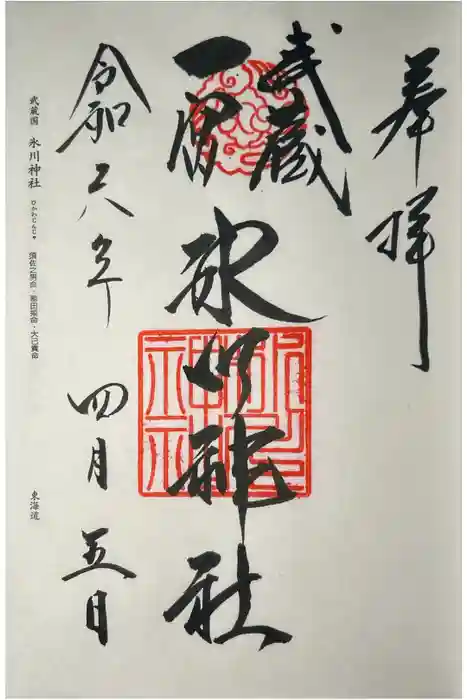 奉拝
武蔵
一宮
氷川神社
令和六年 四月五日
武蔵国 氷川神社 ひかわじんじゃ 須佐之男命・稲田姫命・大己貴命 東海道